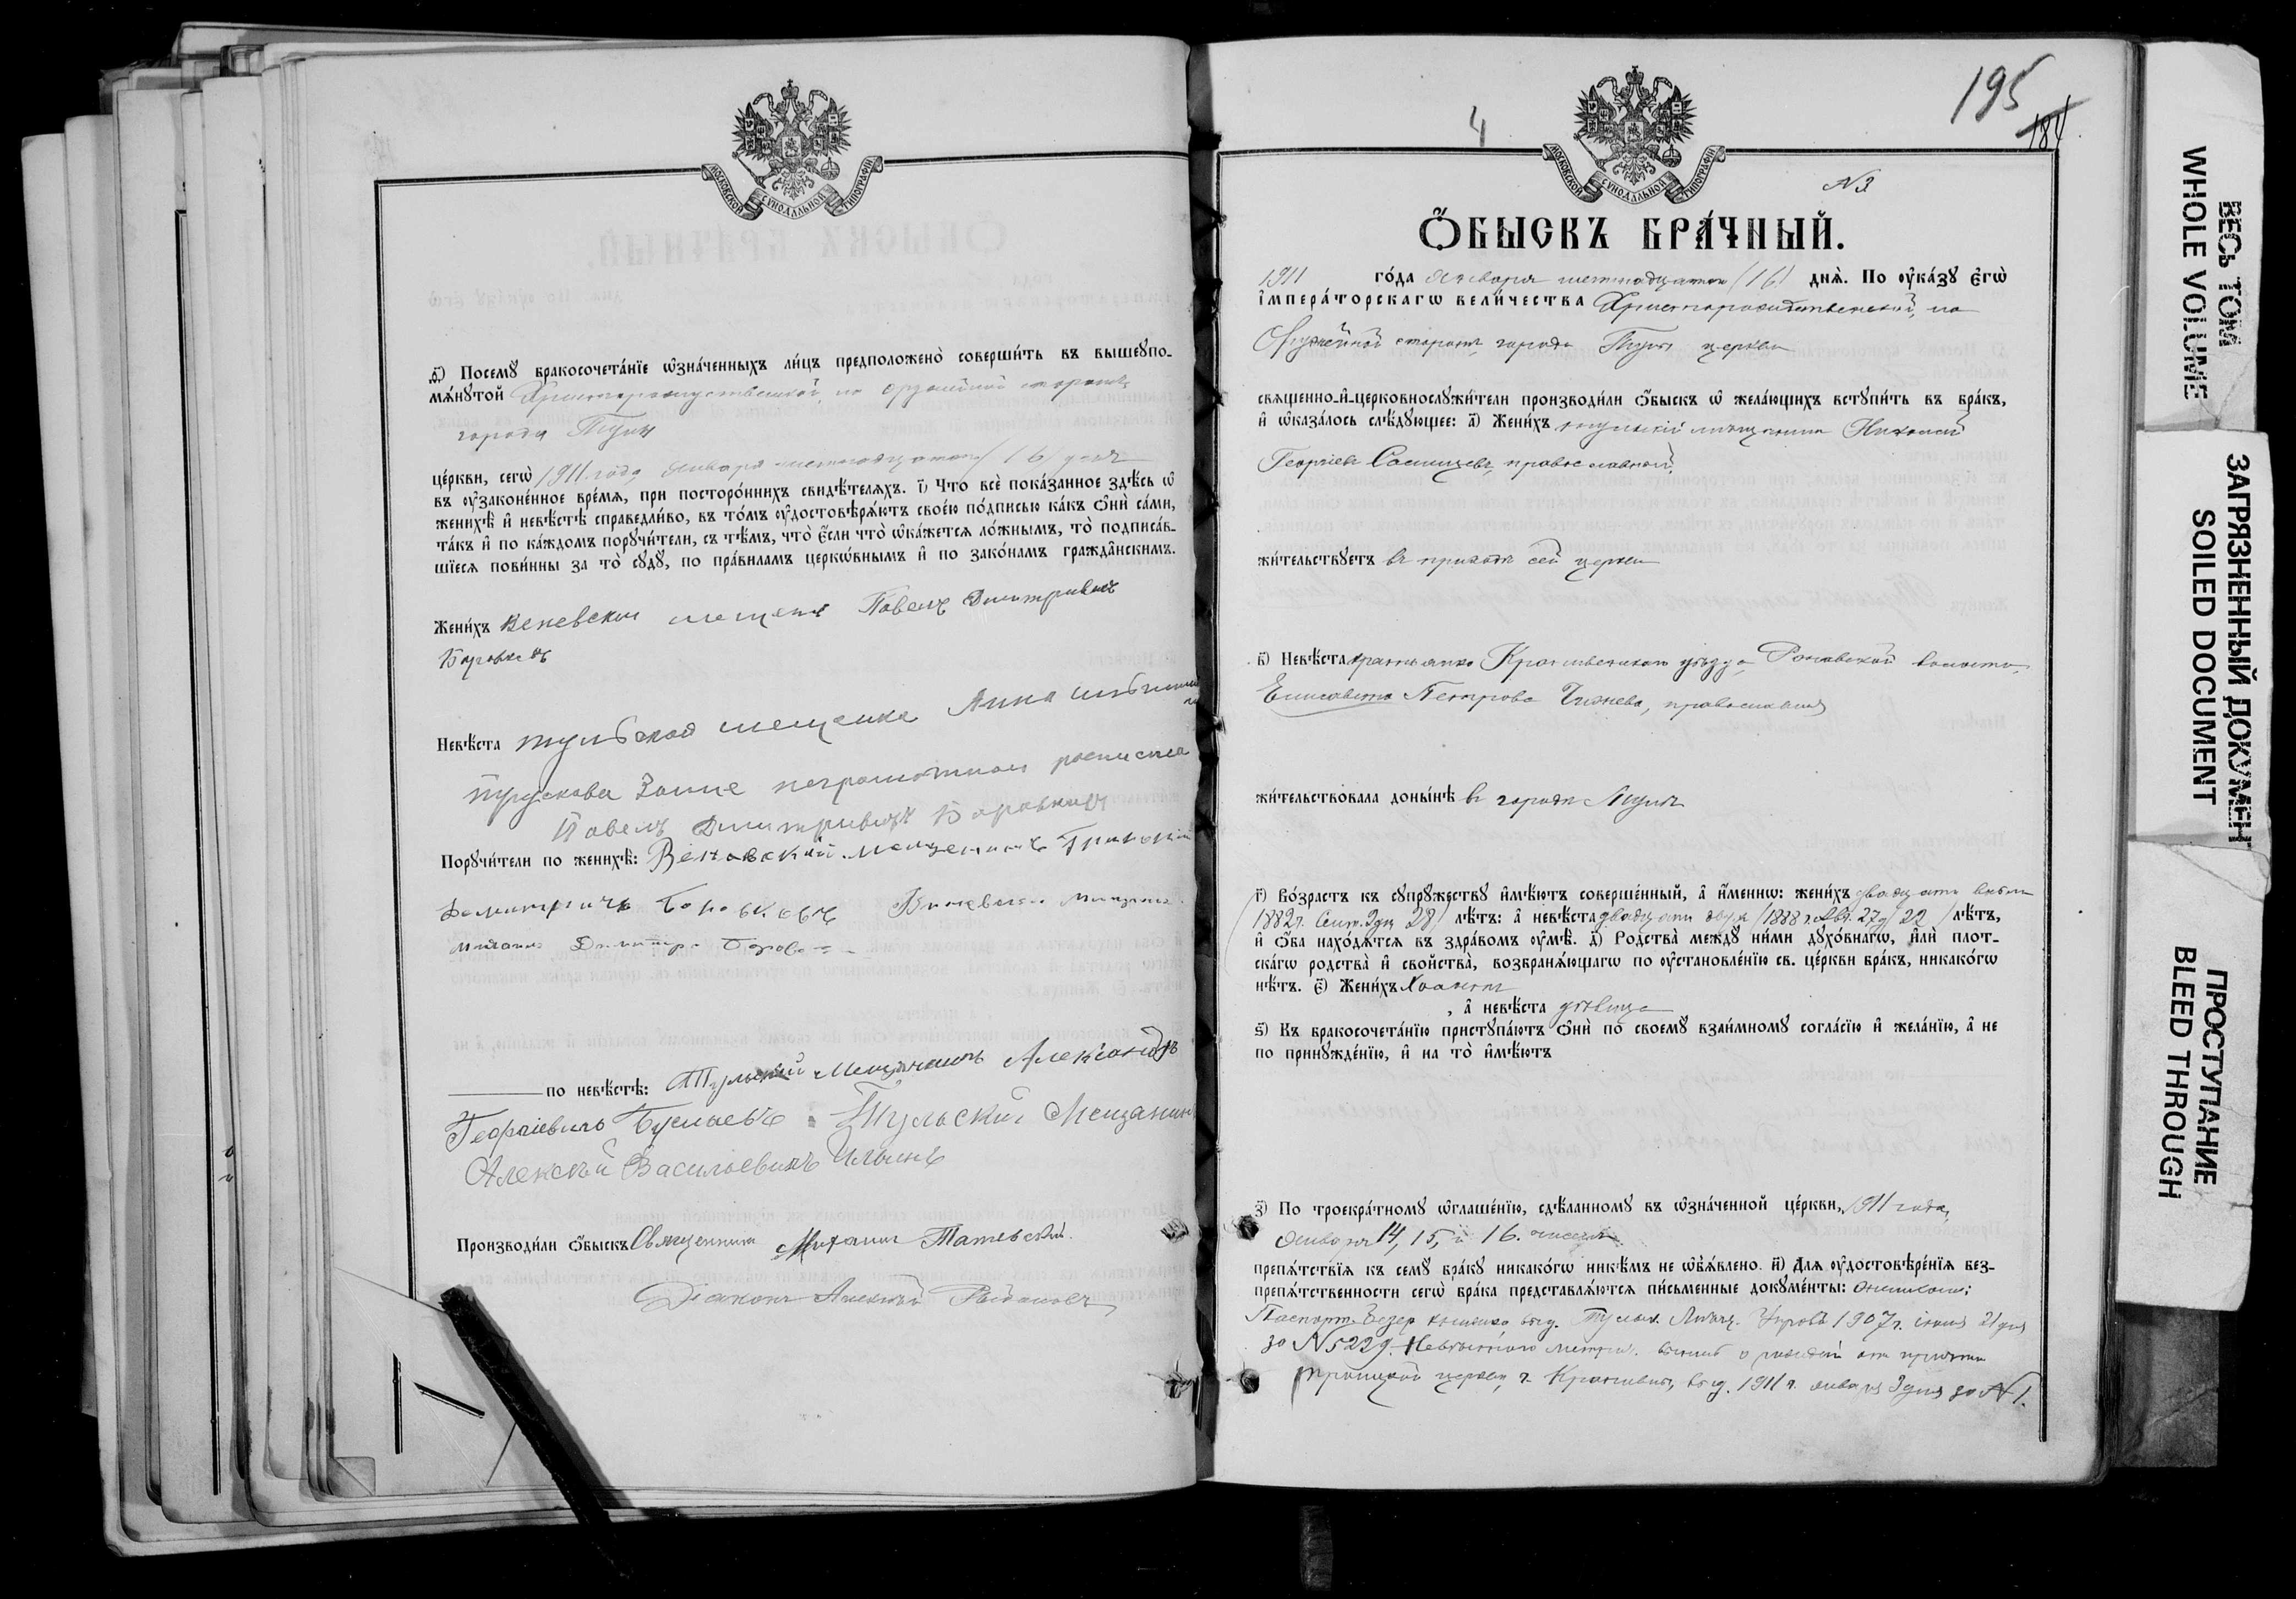 МОСКОВСКОЙ СУНОДАЛЬНОЙ ТИПОГРАФІИ
д҃і) Посемꙋ̀ бракосочета́нїе ѡ҆зна́ченныхъ ли́цъ предположено̀ соверши́ть въ вышеꙋпо-
мѧ́нꙋтой Христорождественской, на оружейной сторонѣ
города Тулы
це́ркви, сегѡ̀ 1911 года, января шестнадцатаго (16) дня
въ ᲂу҆зако́не́нное вре́мѧ, при посторо́ннихъ свидѣ́телѧхъ. і҃) Что̀ всѐ пока́занное здѣ́сь ѡ҆
женихѣ̀ и҆ невѣ́стѣ справедли́во, въ то́мъ ᲂу҆достовѣрѧ́ютъ свое́ю по́дписью ка́къ ѻ҆нѝ са́ми,
та́къ и҆ по ка́ждомъ порꙋчи́тели, съ тѣ́мъ, что̀ є҆́сли что̀ ѡ҆ка́жетсѧ ло́жнымъ, то̀ подписа́в-
шїесѧ пови́нны за то̀ сꙋдꙋ̀, по пра́виламъ церкѡ́внымъ и҆ по зако́намъ гражда̂нскимъ.
Жени́хъ Веневский мещенин Павелъ Дмитривичъ
Боровковъ
Невѣ́ста тульская мещенка Анна
занее неграмотною росписался
Павелъ Дмитривичъ Боровков
Порꙋчи́тели по женихѣ̀: Веневский мещенинъ
Демитричъ Боровковъ
Дмитрий
по невѣ́стѣ: Тульский Мещанинъ Александръ
Георгіевичъ Буслаевъ Тульский Мещанин
Алексѣй Васильевичъ Ильинъ
Производи́ли ѻ҆́быскъ Священникъ Михаилъ Татевский.
Діаконъ Алексѣй
195
184
4
МОСКОВСКОЙ СУНОДАЛЬНОЙ ТИПОГРАФІИ
N 3
Ѻ҆́БЫСКЪ БРА́ЧНЫЙ.
1911 го́да января шестнадцатаго (16) днѧ̀. По ᲂу҆ка́зꙋ є҆гѡ̀
і҆мпера́торскагѡ вели́чества Христорождественской, на
Оружейной сторонѣ города Тулы церкви
свѧще́нно-и҆-церковнослꙋжи́тели производи́ли ѻ҆́быскъ ѡ҆ жела́ющихъ встꙋпи́ть въ бра́къ,
и҆ ѡ҆каза́лось слѣ́дꙋющее: а҃) Жени́хъ тульскій мѣщанинъ Николай
Георгіевъ православный,
жи́тельствꙋетъ въ приходѣ сей церкви
в҃) Невѣ́ста крестьянка Крапивенскаго уѣзда, волости,
Елисавета Петрова Чижнева, православная
жи́тельствовала доны́нѣ въ городѣ Тулѣ
г҃) Во́зрастъ къ сꙋпрꙋ́жествꙋ и҆мѣ́ютъ соверше́нный, а҆ и҆́меннѡ: жени́хъ двадцати восьми
1882 г. Сент. 2 дн. 28 лѣ́тъ: а҆ невѣ́ста двадцати двухъ (1888 г. Авг. 27 д) 22 лѣ́тъ,
и҆ ѻ҆́ба нахо́дѧтсѧ въ здра́вомъ ᲂу҆мѣ̀. д҃) Родства̀ междꙋ̀ ни́ми дꙋхо́внагѡ, и҆лѝ плот-
ска́гѡ родства̀ и҆ свойства̀, возбранѧ́ющагѡ по ᲂу҆становле́нїю св. це́ркви бра́къ, никако́гѡ
нѣ́тъ. є҃) Жени́хъ холостъ
, а҆ невѣ́ста дѣвица
ѕ҃) Къ бракосочета́нїю пристꙋпа́ютъ ѻ҆нѝ по своемꙋ̀ взаи́мномꙋ согла́сїю и҆ жела́нїю, а҆ не
по принꙋжде́нїю, и҆ на то̀ и҆мѣ́ютъ
з҃) По троекра́тномꙋ ѡ҆глаше́нїю, сдѣ́ланномꙋ въ ѡ҆зна́ченной це́ркви, 1911 года,
Января 14, 15, и 16. числа
препѧ́тствїѧ къ семꙋ̀ бра́кꙋ никако́гѡ никѣ́мъ не ѡ҆б̾ѧ́влено. и҃) Для ᲂу҆достовѣре́нїѧ без-
препѧ́тственности сегѡ̀ бра́ка представлѧ́ютсѧ пи́сьменные докꙋме́нты:
Паспорт. книжка выд. Тульск. Мѣщ. Управ. 1907 г. іюня 21 дня
за N 5229. Невѣстою о рожденіи
троицкой церкви, г. Крапивны, выд. 1911 г. января 3 дня за N 1.
ВЕСЬ ТОМ
WHOLE VOLUME
ЗАГРЯЗНЕННЫЙ ДОКУМЕНТ
SOILED DOCUMENT
ПРОСТУПАНИЕ
BLEED THROUGH